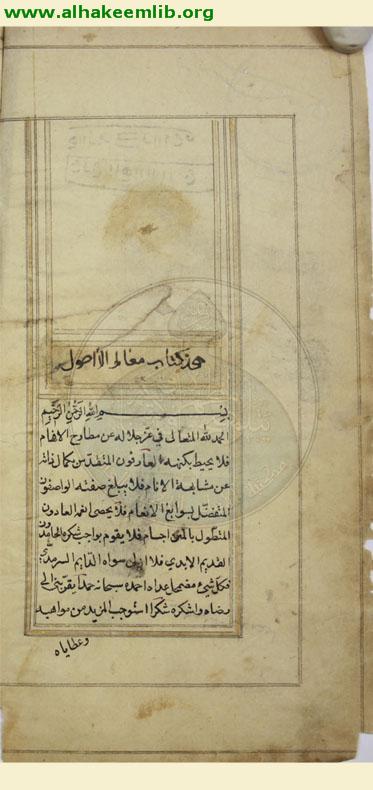 www.alhakeemlib.org
هذا كتاب معالم الأصول
بسم الله الرحمن الرحيم
الحمد لله المتعالى في عز جلاله عن مطارح الافهام
فلا يحيط بكنهه العارفون المتقدس بكمال ذاته
عن مشابهة الانام فلا يبلغ صفته الواصفون
المتفضل بسوابغ الانعام فلا يحصى نعمه العادون
المتطول بالمنن الجسام فلا يقوم بواجب شكره الحامدون
القديم الابدي فلا ازلى سواه الدايم السرمدي
فكل شيء مضمحل عداه احمده سبحانه حمدا يقربنى الى
رضاه واشكره شكرا استوجب المزيد من مواهبه
وعطاياه